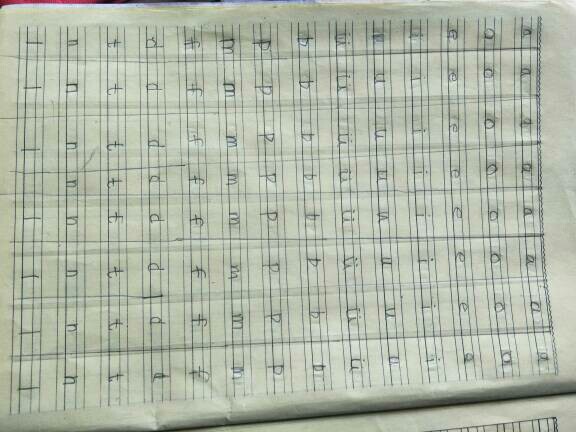 a a a a a a a a
o o o o o o o o
e e e e e e e e
i i i i i i i i
u u u u u u u u
ü ü ü ü ü ü ü ü
b b b b b b b b
p p p p p p p p
m m m m m m m m
f f f f f f f f
d d d d d d d d
t t t t t t t t
n n n n n n n n
l l l l l l l l